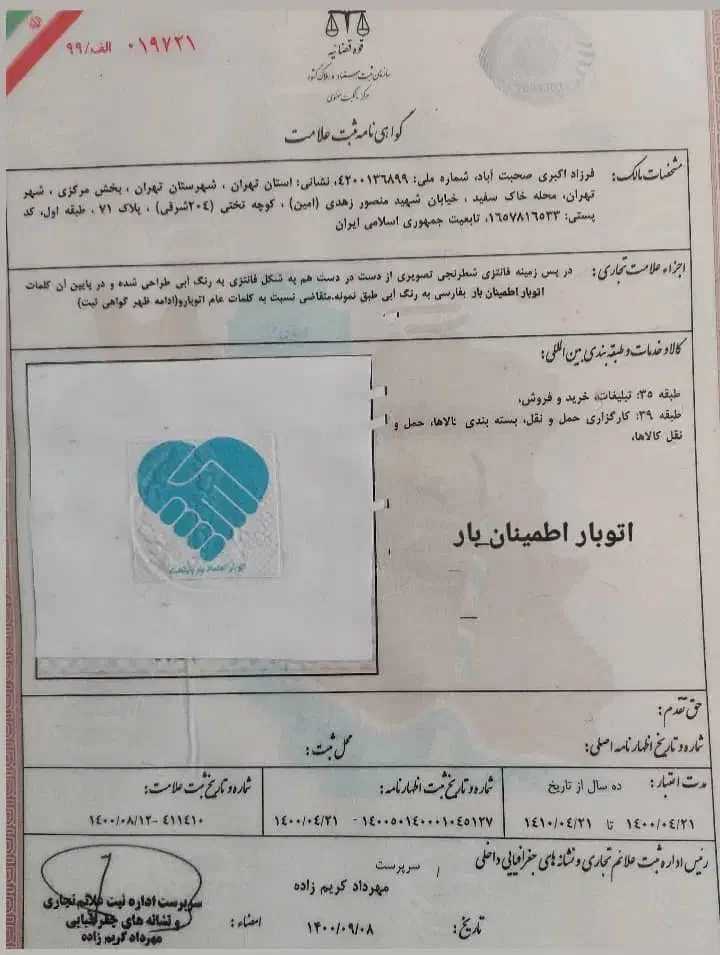 ۰۱۹۷۲۱ الف/۹۹
قوه قضائیه
سازمان ثبت اسناد و املاک کشور
مرکز مالکیت معنوی
گواهی نامه ثبت علامت
مشخصات مالک: فرزاد اکبری صحبت آباد، شماره ملی: ۴۲۰۰۱۳۶۸۹۹، نشانی: استان تهران ، شهرستان تهران ، بخش مرکزی ، شهر
تهران، محله خاک سفید ، خیابان شهید منصور زهدی (امین) ، کوچه تختی (۲۰۴شرقی) ، پلاک ۷۱ ، طبقه اول، کد
پستی: ۱۶۵۷۸۱۶۵۳۳، تابعیت جمهوری اسلامی ایران
اجزاء علامت تجاری: در پس زمینه فانتزی شطرنجی تصویری از دست در دست هم به شکل فانتزی به رنگ آبی طراحی شده و در پایین آن کلمات
اتوبار اطمینان بار بفارسی به رنگ آبی طبق نمونه.متقاضی نسبت به کلمات عام اتوبارو(ادامه ظهر گواهی ثبت)
کالا و خدمات و طبقه بندی بین المللی:
طبقه ۳۵: تبلیغات، خرید و فروش،
طبقه ۳۹: کارگزاری حمل و نقل، بسته بندی کالاها، حمل و
نقل کالاها،
اتوبار اطمینان_بار
حق تقدم:
شماره و تاریخ اظهارنامه اصلی:
محل ثبت:
مدت اعتبار: ده سال از تاریخ
۱۴۰۰/۰۴/۲۱ تا ۱۴۱۰/۰۴/۲۱
شماره و تاریخ ثبت اظهارنامه:
۱۴۰۰۵۰۱۴۰۰۰۱۰۴۵۱۲۷ - ۱۴۰۰/۰۴/۲۱
شماره و تاریخ ثبت علامت:
۴۱۱۴۱۰ -۱۴۰۰/۰۸/۱۲
رئیس اداره ثبت علائم تجاری و نشانه های جغرافیایی داخلی
سرپرست
مهرداد کریم زاده
تاریخ: ۱۴۰۰/۰۹/۰۸
امضاء:
سرپرست اداره ثبت علائم تجاری
و نشانه های جغرافیایی
مهرداد کریم زاده